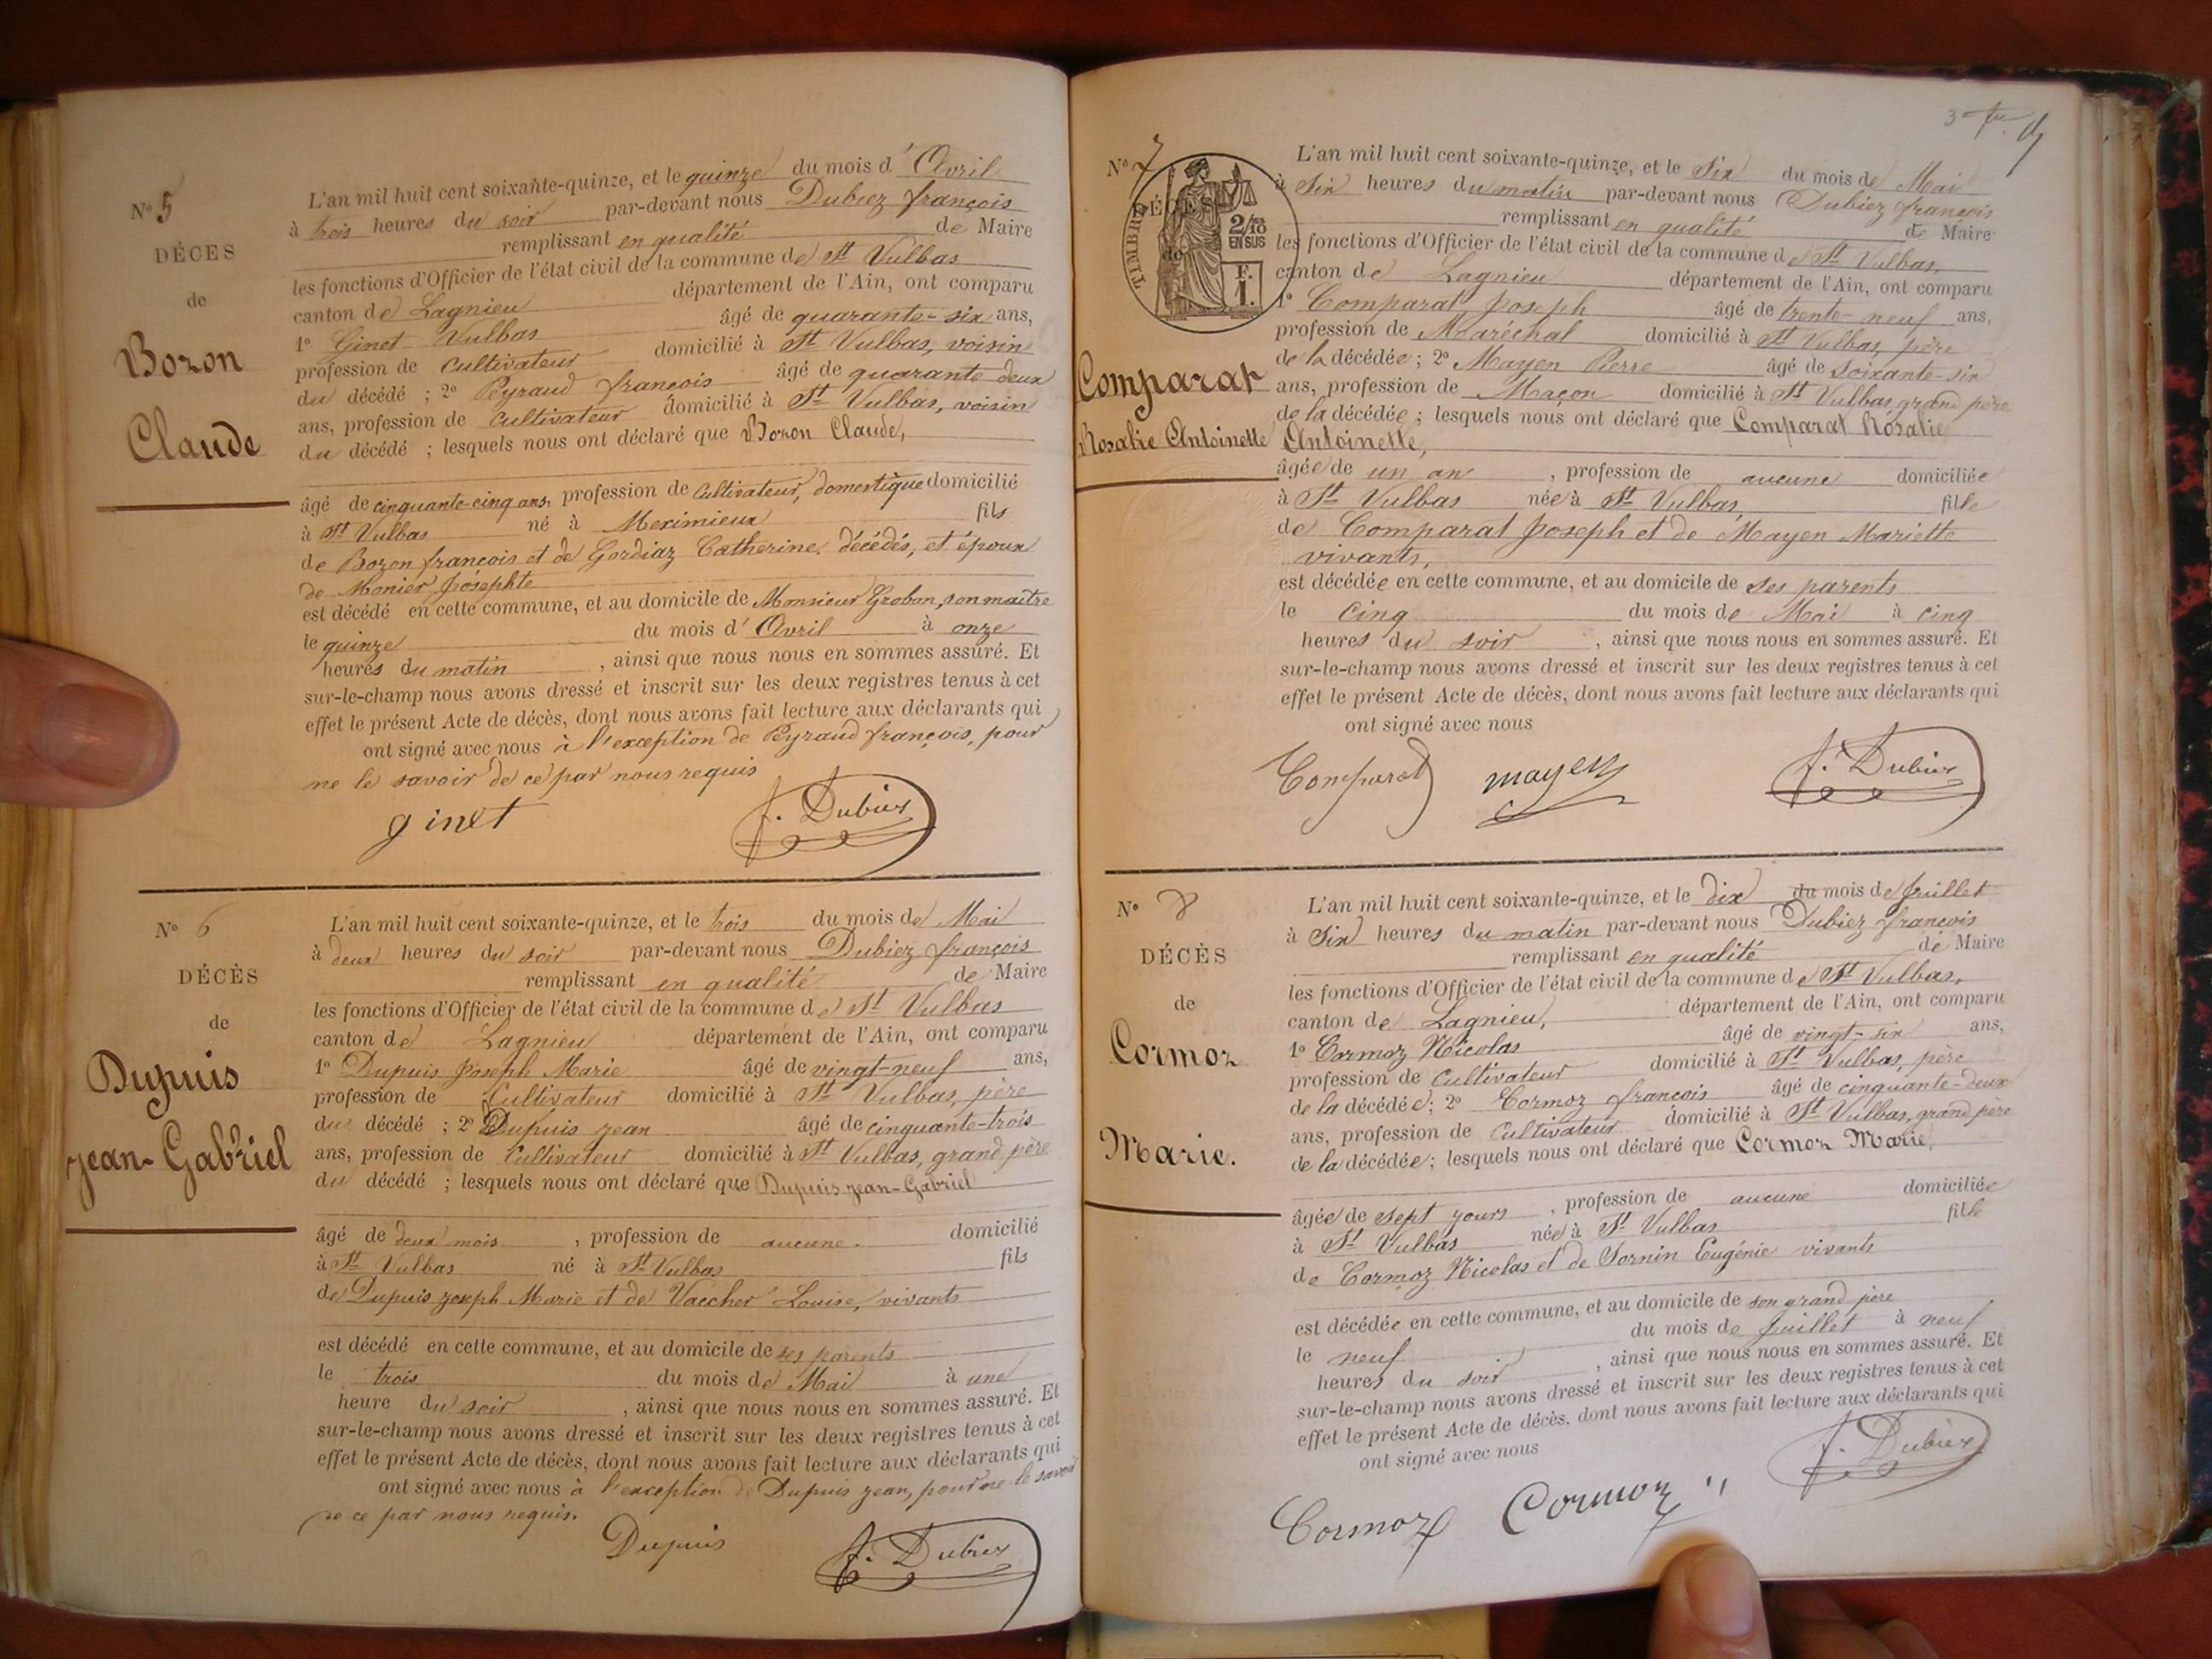 Nº 5
DÉCES
de
Bozon
Claude
L'an mil huit cent soixante-quinze, et le quinze du mois d' Avril
à trois heures du soir par-devant nous Dubiez françois
remplissant en qualité de Maire
les fonctions d'Officier de l'état civil de la commune de St Vulbas
canton de Lagnieu département de l'Ain, ont comparu
1º Ginet Vulbas âgé de quarante-six ans,
profession de cultivateur domicilié à St Vulbas, voisin
du décédé ; 2º Peyraud françois âgé de quarante deux
ans, profession de cultivateur domicilié à St Vulbas, voisin
du décédé ; lesquels nous ont déclaré que Bozon Claude,
âgé de cinquante-cinq ans, profession de cultivateur, domestique domicilié
à St Vulbas né à Meximieux fils
de Bozon françois et de Gordiaz Catherine, décédés, et époux
de Monier Josephte
est décédé en cette commune, et au domicile de Monsieur Grobon, son maître
le quinze du mois d' Avril à onze
heures du matin , ainsi que nous nous en sommes assuré. Et
sur-le-champ nous avons dressé et inscrit sur les deux registres tenus à cet
effet le présent Acte de décès, dont nous avons fait lecture aux déclarants qui
ont signé avec nous à l'exception de Peyraud françois, pour
ne le savoir de ce par nous requis
ginet F. Dubiez
Nº 6
DÉCÈS
de
Dupuis
Jean-Gabriel
L'an mil huit cent soixante-quinze, et le trois du mois de Mai
à deux heures du soir par-devant nous Dubiez françois
remplissant en qualité de Maire
les fonctions d'Officier de l'état civil de la commune de St Vulbas
canton de Lagnieu département de l'Ain, ont comparu
1º Dupuis Joseph Marie âgé de vingt-neuf ans,
profession de Cultivateur domicilié à St Vulbas, père
du décédé ; 2º Dupuis jean âgé de cinquante-trois
ans, profession de Cultivateur domicilié à St Vulbas, grand père
du décédé ; lesquels nous ont déclaré que Dupuis jean-Gabriel
âgé de deux mois , profession de aucune domicilié
à St Vulbas né à St Vulbas fils
de Dupuis joseph Marie et de Vaccher Louise, vivants
est décédé en cette commune, et au domicile de ses parents
le trois du mois de Mai à une
heure du soir , ainsi que nous nous en sommes assuré. Et
sur-le-champ nous avons dressé et inscrit sur les deux registres tenus à cet
effet le présent Acte de décès, dont nous avons fait lecture aux déclarants qui
ont signé avec nous à l'exception de Dupuis jean, pour ne le savoir
de ce par nous requis.
Dupuis F. Dubiez
Nº 7
DÉCÈS
de
TIMBRE
2/10 EN SUS
F. 1.
Comparat
Rosalie Antoinette
L'an mil huit cent soixante-quinze, et le Six du mois de Mai
à Six heures du matin par-devant nous Dubiez françois
remplissant en qualité de Maire
les fonctions d'Officier de l'état civil de la commune de St Vulbas,
canton de Lagnieu département de l'Ain, ont comparu
1º Comparat Joseph âgé de trente-neuf ans,
profession de Maréchal domicilié à St Vulbas, père
de la décédée ; 2º Mayen Pierre âgé de soixante-six
ans, profession de Maçon domicilié à St Vulbas, grand père
de la décédée ; lesquels nous ont déclaré que Comparat Rosalie
Antoinette,
âgée de un an , profession de aucune domiciliée
à St Vulbas née à St Vulbas, fille
de Comparat Joseph et de Mayen Mariette
vivants,
est décédée en cette commune, et au domicile de ses parents
le cinq du mois de Mai à cinq
heures du soir , ainsi que nous nous en sommes assuré. Et
sur-le-champ nous avons dressé et inscrit sur les deux registres tenus à cet
effet le présent Acte de décès, dont nous avons fait lecture aux déclarants qui
ont signé avec nous
Comparat mayen F. Dubiez
Nº 8
DÉCÈS
de
Cormoz
Marie.
L'an mil huit cent soixante-quinze, et le dix du mois de Juillet
à Six heures du matin par-devant nous Dubiez françois
remplissant en qualité de Maire
les fonctions d'Officier de l'état civil de la commune de St Vulbas,
canton de Lagnieu, département de l'Ain, ont comparu
1º Cormoz Nicolas âgé de vingt-six ans,
profession de Cultivateur domicilié à St Vulbas, père
de la décédée; 2º Cormoz françois âgé de cinquante-deux
ans, profession de Cultivateur domicilié à St Vulbas, grand père
de la décédée; lesquels nous ont déclaré que Cormoz Marie,
âgée de sept jours , profession de aucune domiciliée
à St Vulbas née à St Vulbas fille
de Cormoz Nicolas et de Sornin Eugénie vivants
est décédée en cette commune, et au domicile de son grand père
le neuf du mois de Juillet à neuf
heures du soir , ainsi que nous nous en sommes assuré. Et
sur-le-champ nous avons dressé et inscrit sur les deux registres tenus à cet
effet le présent Acte de décès. dont nous avons fait lecture aux déclarants qui
ont signé avec nous
Cormoz Cormoz F. Dubiez